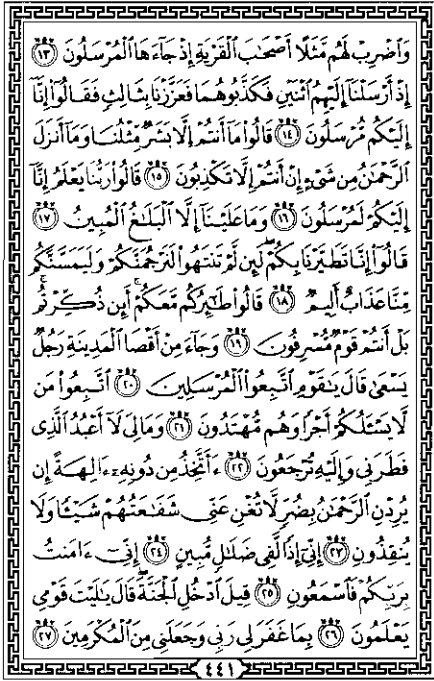 وَٱضْرِبْ لَهُم مَّثَلًا أَصْحَٰبَ ٱلْقَرْيَةِ إِذْ جَآءَهَا ٱلْمُرْسَلُونَ ١٣
إِذْ أَرْسَلْنَآ إِلَيْهِمُ ٱثْنَيْنِ فَكَذَّبُوهُمَا فَعَزَّزْنَا بِثَالِثٍ فَقَالُوٓا۟ إِنَّآ
إِلَيْكُم مُّرْسَلُونَ ١٤ قَالُوا۟ مَآ أَنتُمْ إِلَّا بَشَرٌ مِّثْلُنَا وَمَآ أَنزَلَ
ٱلرَّحْمَٰنُ مِن شَىْءٍ إِنْ أَنتُمْ إِلَّا تَكْذِبُونَ ١٥ قَالُوا۟ رَبُّنَا يَعْلَمُ إِنَّآ
إِلَيْكُمْ لَمُرْسَلُونَ ١٦ وَمَا عَلَيْنَآ إِلَّا ٱلْبَلَٰغُ ٱلْمُبِينُ ١٧
قَالُوٓا۟ إِنَّا تَطَيَّرْنَا بِكُمْ ۖ لَئِن لَّمْ تَنتَهُوا۟ لَنَرْجُمَنَّكُمْ وَلَيَمَسَّنَّكُم
مِّنَّا عَذَابٌ أَلِيمٌ ١٨ قَالُوا۟ طَٰٓئِرُكُم مَّعَكُمْ ۚ أَئِن ذُكِّرْتُم ۚ
بَلْ أَنتُمْ قَوْمٌ مُّسْرِفُونَ ١٩ وَجَآءَ مِنْ أَقْصَا ٱلْمَدِينَةِ رَجُلٌ
يَسْعَىٰ قَالَ يَٰقَوْمِ ٱتَّبِعُوا۟ ٱلْمُرْسَلِينَ ٢٠ ٱتَّبِعُوا۟ مَن
لَّا يَسْـَٔلُكُمْ أَجْرًا وَهُم مُّهْتَدُونَ ٢١ وَمَا لِىَ لَآ أَعْبُدُ ٱلَّذِى
فَطَرَنِى وَإِلَيْهِ تُرْجَعُونَ ٢٢ ءَأَتَّخِذُ مِن دُونِهِۦٓ ءَالِهَةً إِن
يُرِدْنِ ٱلرَّحْمَٰنُ بِضُرٍّ لَّا تُغْنِ عَنِّى شَفَٰعَتُهُمْ شَيْـًٔا وَلَا
يُنقِذُونِ ٢٣ إِنِّىٓ إِذًا لَّفِى ضَلَٰلٍ مُّبِينٍ ٢٤ إِنِّىٓ ءَامَنتُ
بِرَبِّكُمْ فَٱسْمَعُونِ ٢٥ قِيلَ ٱدْخُلِ ٱلْجَنَّةَ ۖ قَالَ يَٰلَيْتَ قَوْمِى
يَعْلَمُونَ ٢٦ بِمَا غَفَرَ لِى رَبِّى وَجَعَلَنِى مِنَ ٱلْمُكْرَمِينَ ٢٧
٤٤١